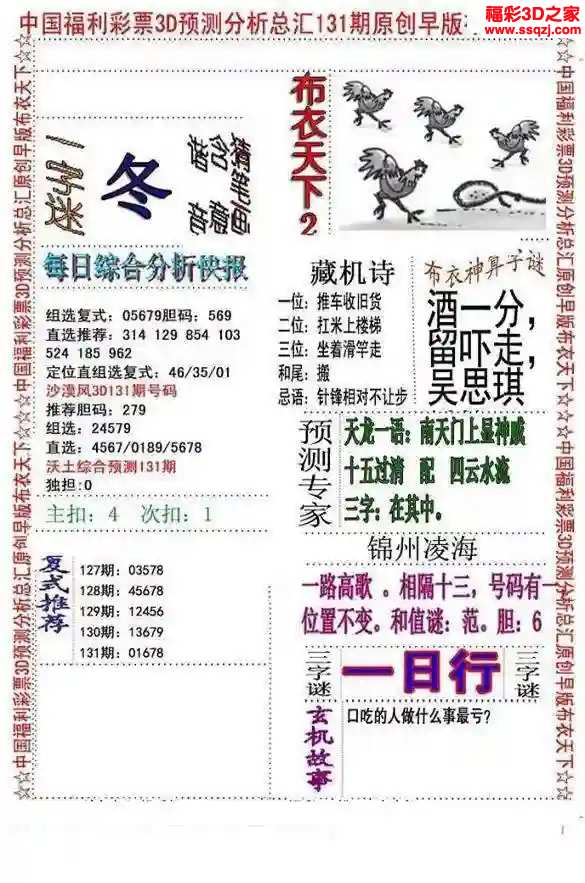 福彩3D之家
www.ssqzj.com
中国福利彩票3D预测分析总汇131期原创早版
☆☆中国福利彩票3D预测分析总汇原创早版布衣天下☆☆中国福利彩票3D预测分析总汇原创早版布衣天下☆☆
一字迷
冬
猜笔画
含值
猜
布衣天下2
每日综合分析快报
组选复式: 05679胆码: 569
直选推荐: 314 129 854 103
524 185 962
定位直组选复式: 46/35/01
沙漠风3D131期号码
推荐胆码: 279
组选: 24579
直选: 4567/0189/5678
沃土综合预测131期
独担:0
主扣: 4 次扣: 1
复式推荐
127期: 03578
128期: 45678
129期: 12456
130期: 13679
131期: 01678
藏机诗
一位: 推车收旧货
二位: 扛米上楼梯
三位: 坐着滑竿走
和尾: 搬
忌语: 针锋相对不让步
布衣神算字谜
酒一分,
留吓走,
吴思琪
预测专家
天龙一语: 南天门上显神威
十五过清 配 四云水流
三字: 在其中。
锦州凌海
一路高歌 。相隔十三, 号码有一
位置不变。和值谜: 范。胆: 6
三字谜
一日行
三字谜
玄机故事
口吃的人做什么事最亏?
☆☆中国福利彩票3D预测分析总汇原创早版布衣天下☆☆中国福利彩票3D预测分析总汇原创早版布衣天下☆☆
1